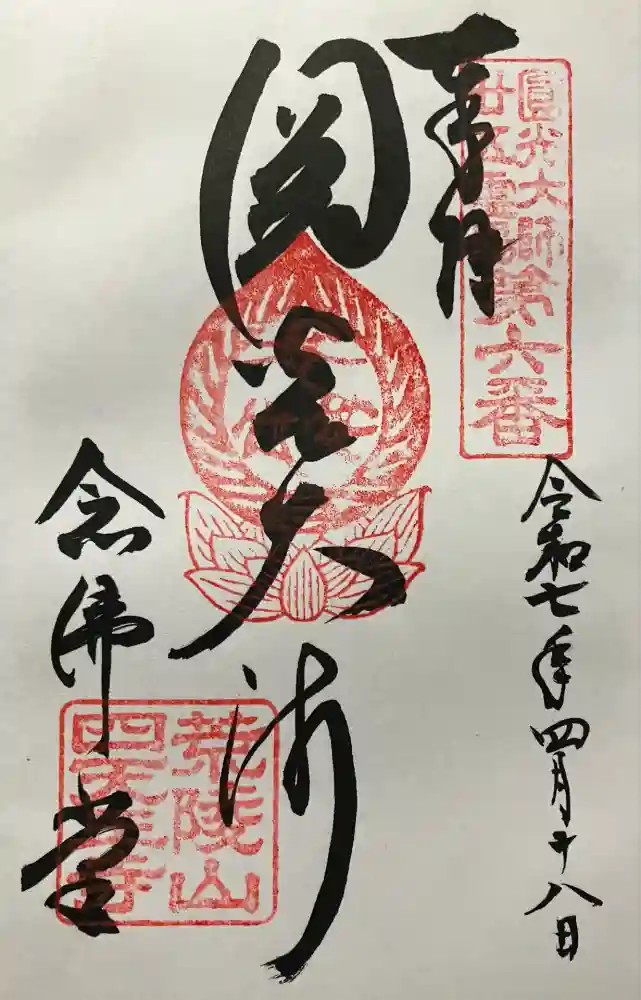 奉拝
圓光大師
廿五霊場
第六番
令和七年四月十八日
圓光大師
荒陵山
四天王寺
念佛堂